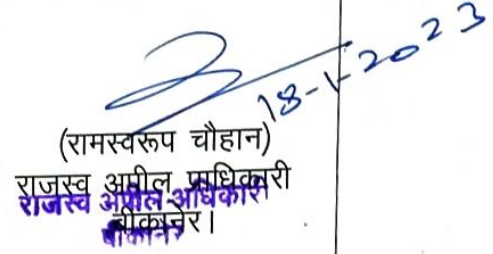 18-1-2023
(रामस्वरूप चौहान)
राजस्व अपील प्राधिकारी
राजस्व अपील अधिकारी
बीकानेर।
बीकानेर